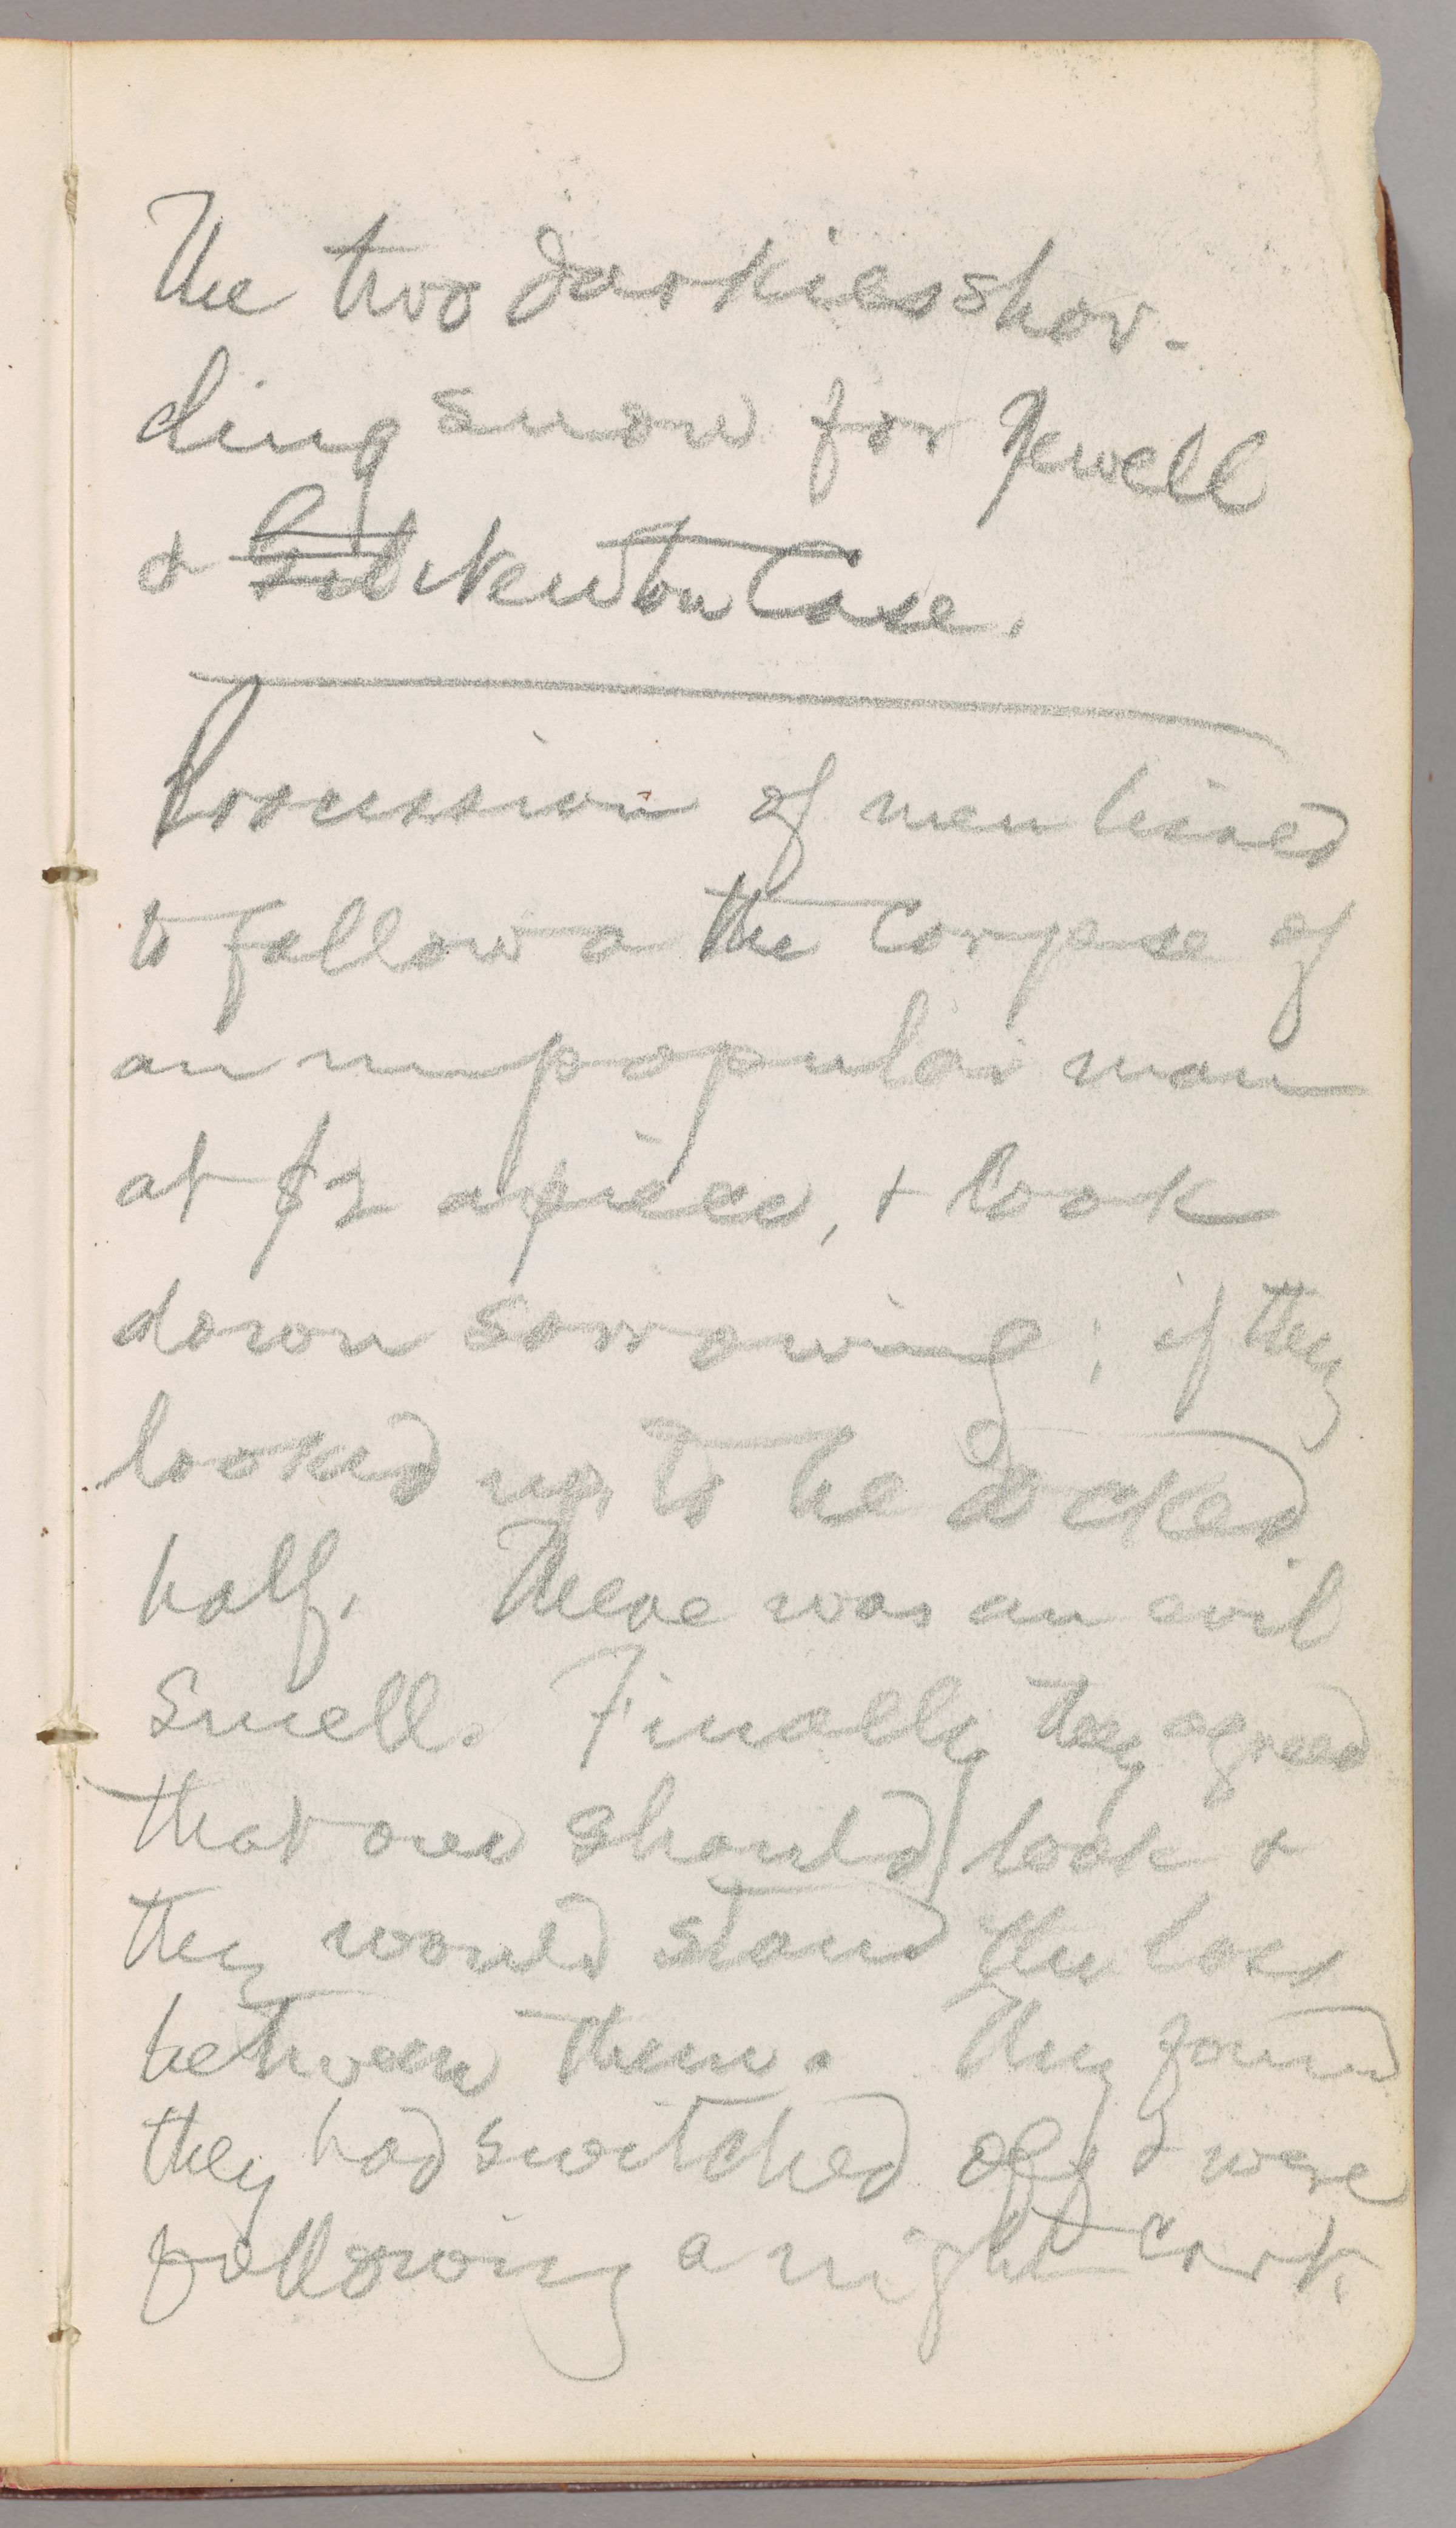 The two darkies shov-
eling snow for Jewell
& Newton Case.
Procession of men hired
to follow a the corpse of
an unpopular man
at $2 apiece, & look
down sorrowing; if they
looked up, to be docked
half. There was an evil
smell. Finally they agreed
that one should look &
they would stand the loss
between them. They found
they had switched off & were
following a night cart.